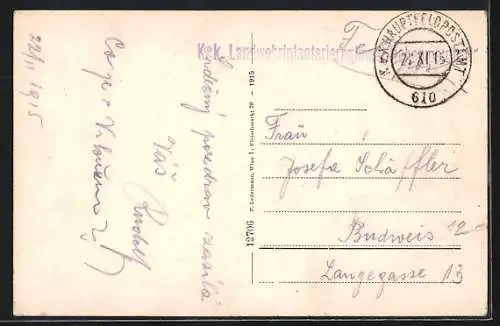 22/11 1915
Srdečný pozdrav zasílá
Váš
Rudolf
K.k. Landwehrinfanterieregiment
K.u.K. HAUPTFELDPOSTAMT
XI. 15
610
Frau
Josefa Schäffler
Budweis
Langegasse 13
12706 P. Ledermann, Wien I., Fleischmarkt 20 – 1915
12-